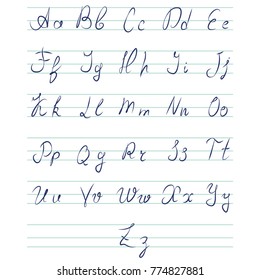 Aa Bb Cc Dd Ee
Ff Gg Hh Ii Jj
Kk Ll Mm Nn Oo
Pp Qq Rr Ss Tt
Uu Vv Ww Xx Yy
Zz
shutterstock.com · 774827881